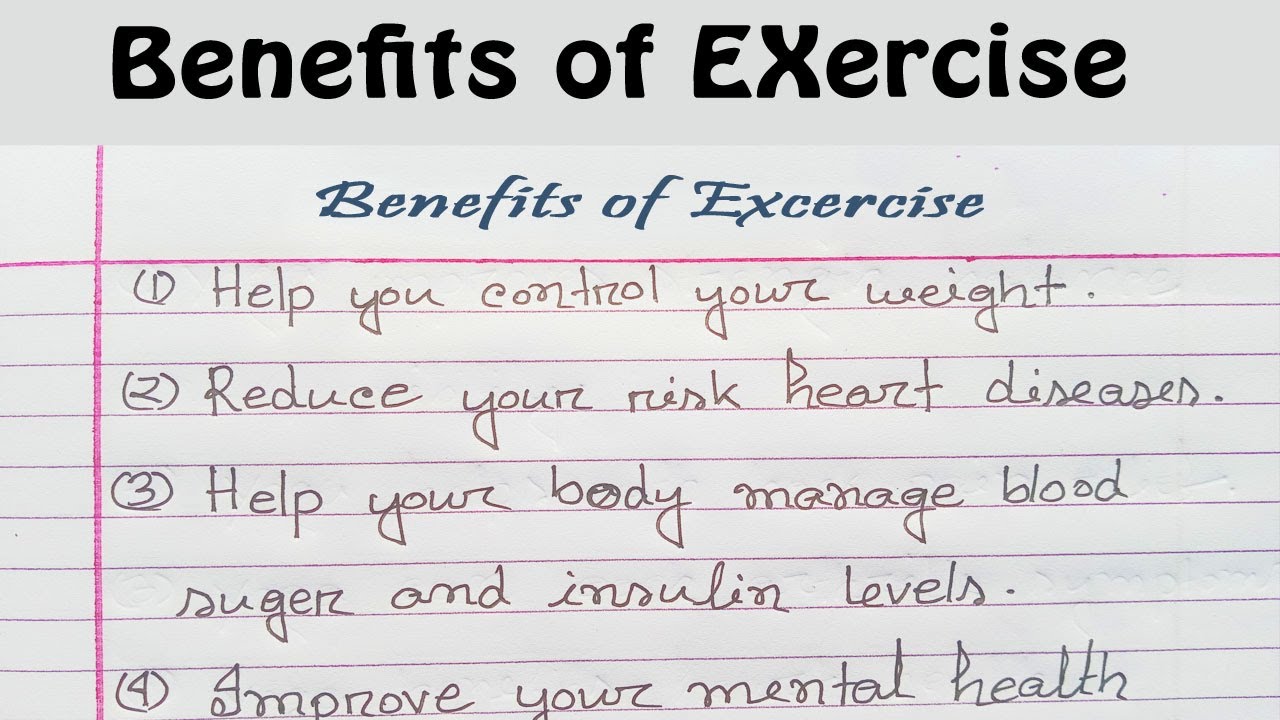 Benefits of EXercise
Benefits of Excercise
(1) Help you control your weight.
(2) Reduce your risk heart diseases.
(3) Help your body manage blood
suger and insulin levels.
(4) Improve your mental health